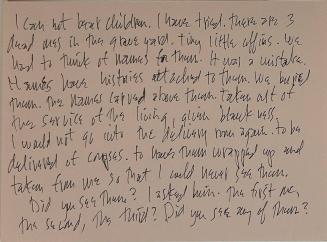 I can not bear children. I have tried. There are 3
dead ones in the grave yard. tiny little coffins. We
had to think of names for them. It was a mistake.
Names have histories attached to them. We buried
them. the names carved above them. taken out of
the service of the living, given blackness.
I would not go into the delivery room again. to be
delivered of corpses. to have them wrapped up and
taken from me so that I could never see them.
Did you see them? I asked him. the first one,
the second, the third? Did you see any of them?